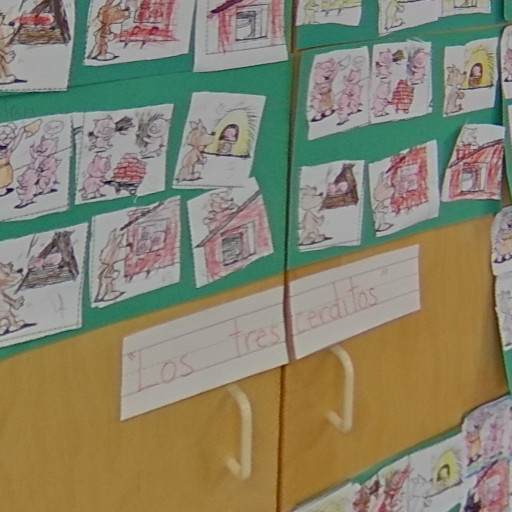 "Los tres cerditos"